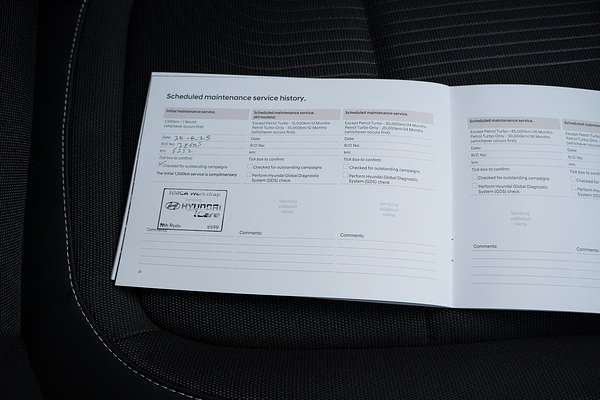 Scheduled maintenance service history.
Initial maintenance service.
1,500km - 1 Month
(whichever occurs first)
Date:
R/O No:
km:
Tick box to confirm:
Checked for outstanding campaigns
The initial 1,500km service is complimentary
HYUNDAI
North Ryde
Comments:
Scheduled maintenance service
(All models)
Except Petrol Turbo - 15,000km/12 Months
Petrol Turbo Only - 10,000km/12 Months
(whichever occurs first)
Date:
R/O No:
km:
Tick box to confirm:
Checked for outstanding campaigns
Perform Hyundai Global Diagnostic
System (GDS) check.
Servicing
validation
stamp
Comments:
Scheduled maintenance service
Except Petrol Turbo - 30,000km/24 Months
Petrol Turbo Only - 20,000km/24 Months
(whichever occurs first)
Date:
R/O No:
km:
Tick box to confirm:
Checked for outstanding campaigns
Perform Hyundai Global Diagnostic
System (GDS) check.
Servicing
validation
stamp
Comments:
Scheduled maintenance service
Except Petrol Turbo - 45,000km/36 Months
Petrol Turbo Only - 30,000km/36 Months
(whichever occurs first)
Date:
R/O No:
km:
Tick box to confirm:
Checked for outstanding campaigns
Perform Hyundai Global Diagnostic
System (GDS) check.
Servicing
validation
stamp
Comments:
Scheduled main
Except Petrol
Petrol Turbo
(whichever
Date:
R/O No:
km:
Tick box
Comments